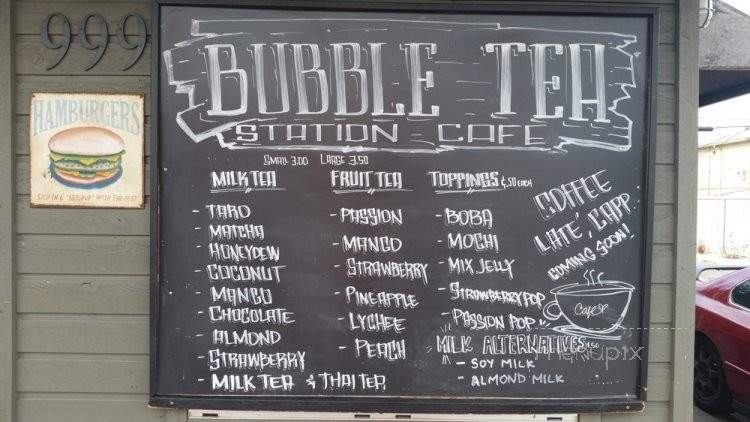 999
HAMBURGERS
STOP IN & "KETCHUP" WITH THE BEST
BUBBLE TEA
STATION CAFE
SMALL 3.00 LARGE 3.50
MILK TEA
- TARO
- MATCHA
- HONEYDEW
- COCONUT
MANGO
- CHOCOLATE
ALMOND
- STRAWBERRY
- MILK TEA & THAI TEA
FRUIT TEA
- PASSION
- MANGO
- STRAWBERRY
- PINEAPPLE
- LYCHEE
- PEACH
TOPPINGS .50 EACH
- BOBA
- MOCHI
- MIX JELLY
- STRAWBERRY POP
- PASSION POP
MILK ALTERNATIVES .50
- SOY MILK
- ALMOND MILK
COFFEE
LATE', CAPP
COMING SOON!
Cafe